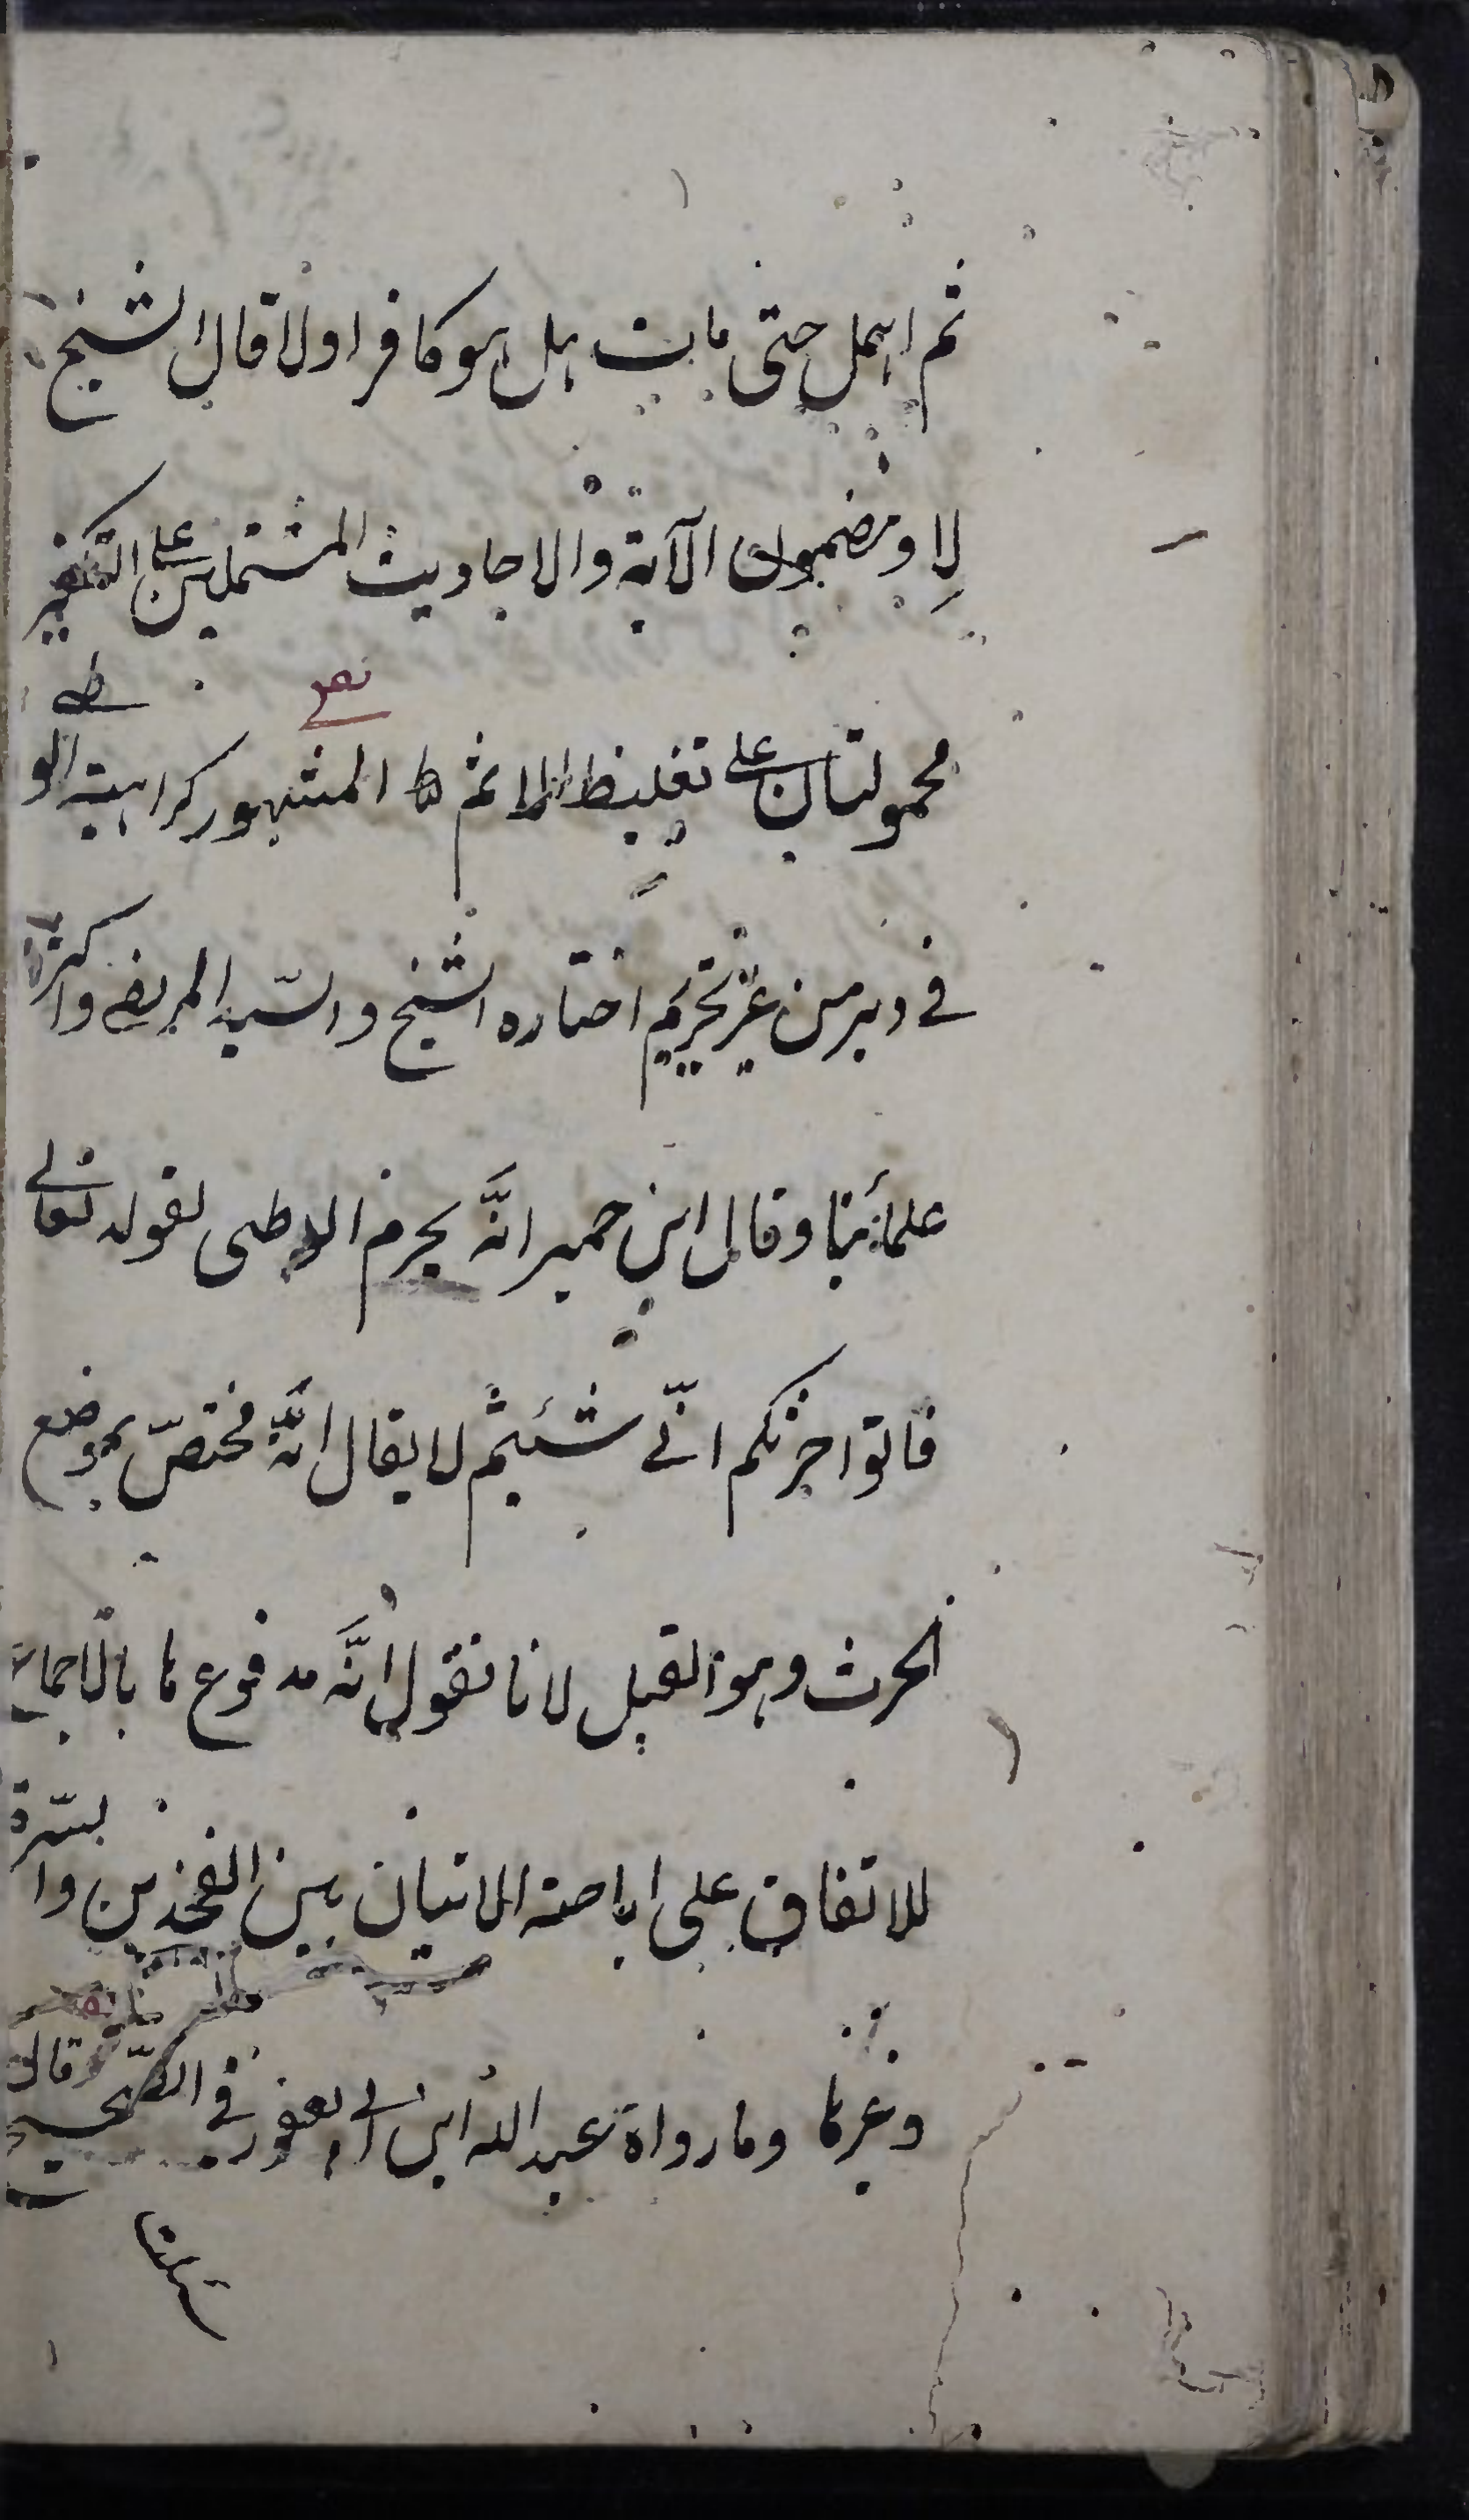 ثم اهمل حتى مات هل هو كافر او لا قال الشيخ
لا و مضمون الآية والاحاديث المشتملين على التكفير
محمولتان على تغليظ الماثم ط المشهور كراهية الو
نص
طى
في دبر من غير تحريم اختاره الشيخ والسّيد المرتضى واكثر
علمائنا وقال ابن حمير انَّه يحرم الوطى لقوله تعالى
فاتوا حرثكم انّى شئتم لا يقال انَّه مختصّ بموضع
الحرث وهو القبل لانا نقول انَّه مدفوع ما بالاجماع
للاتفاق على اباحة الاتيان بين الفخذين وا
لسّرة
وغيرها وما رواة عبد الله ابن ابي يعفور في الصّحيح قال
سالت